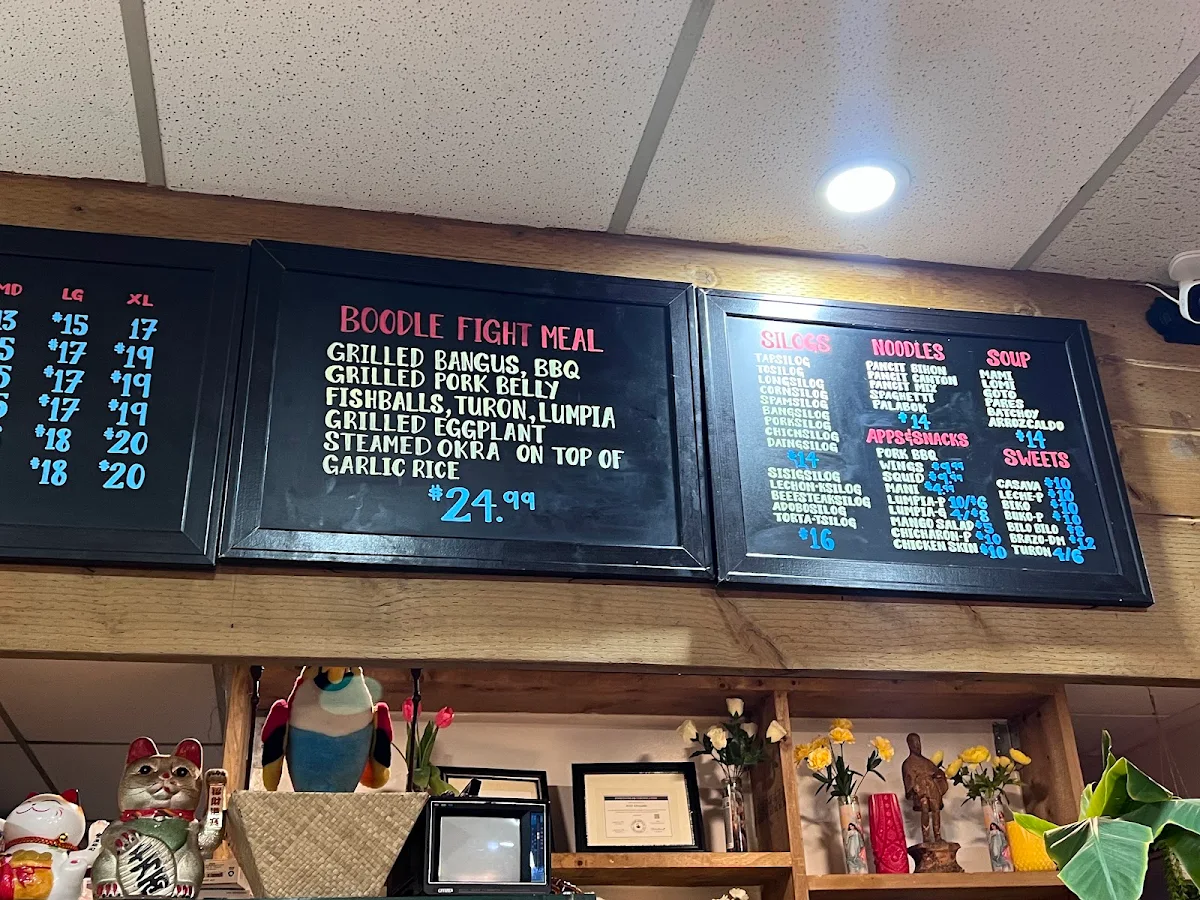 MD LG XL
13 $15 17
5 $17 $19
5 $17 $19
5 $17 $19
$18 $20
$18 $20
BOODLE FIGHT MEAL
GRILLED BANGUS, BBQ
GRILLED PORK BELLY
FISHBALLS, TURON, LUMPIA
GRILLED EGGPLANT
STEAMED OKRA ON TOP OF
GARLIC RICE
$24.99
SILOGS
TAPSILOG
TOSILOG
LONGSILOG
CORNSILOG
SPAMSILOG
BANGSILOG
PORKSILOG
CHICHSILOG
DAINGSILOG
$14
SISIGSILOG
LECHON-KSILOG
BEEFSTEAKSILOG
ADOBOSILOG
TORTA-TSILOG
$16
NOODLES
PANCIT BIHON
PANCIT CANTON
PANCIT MIX
SPAGHETTI
PALABOK
$14
APPS&SNACKS
PORK BBQ
WINGS $9.99
SQUID $9.99
MANI $4.99
LUMPIA-P 10/$6
LUMPIA-G 4/$8
MANGO SALAD $5
CHICHARON-P $10
CHICKEN SKIN $10
SOUP
MAMI
LOMI
GOTO
PARES
BATCHOY
ARROZCALDO
$14
SWEETS
CASAVA $10
LECHE-P $10
BIKO $10
BUKO-P $10
BILO BILO $8
BRAZO-DM $12
TURON 4/6
CITIZEN